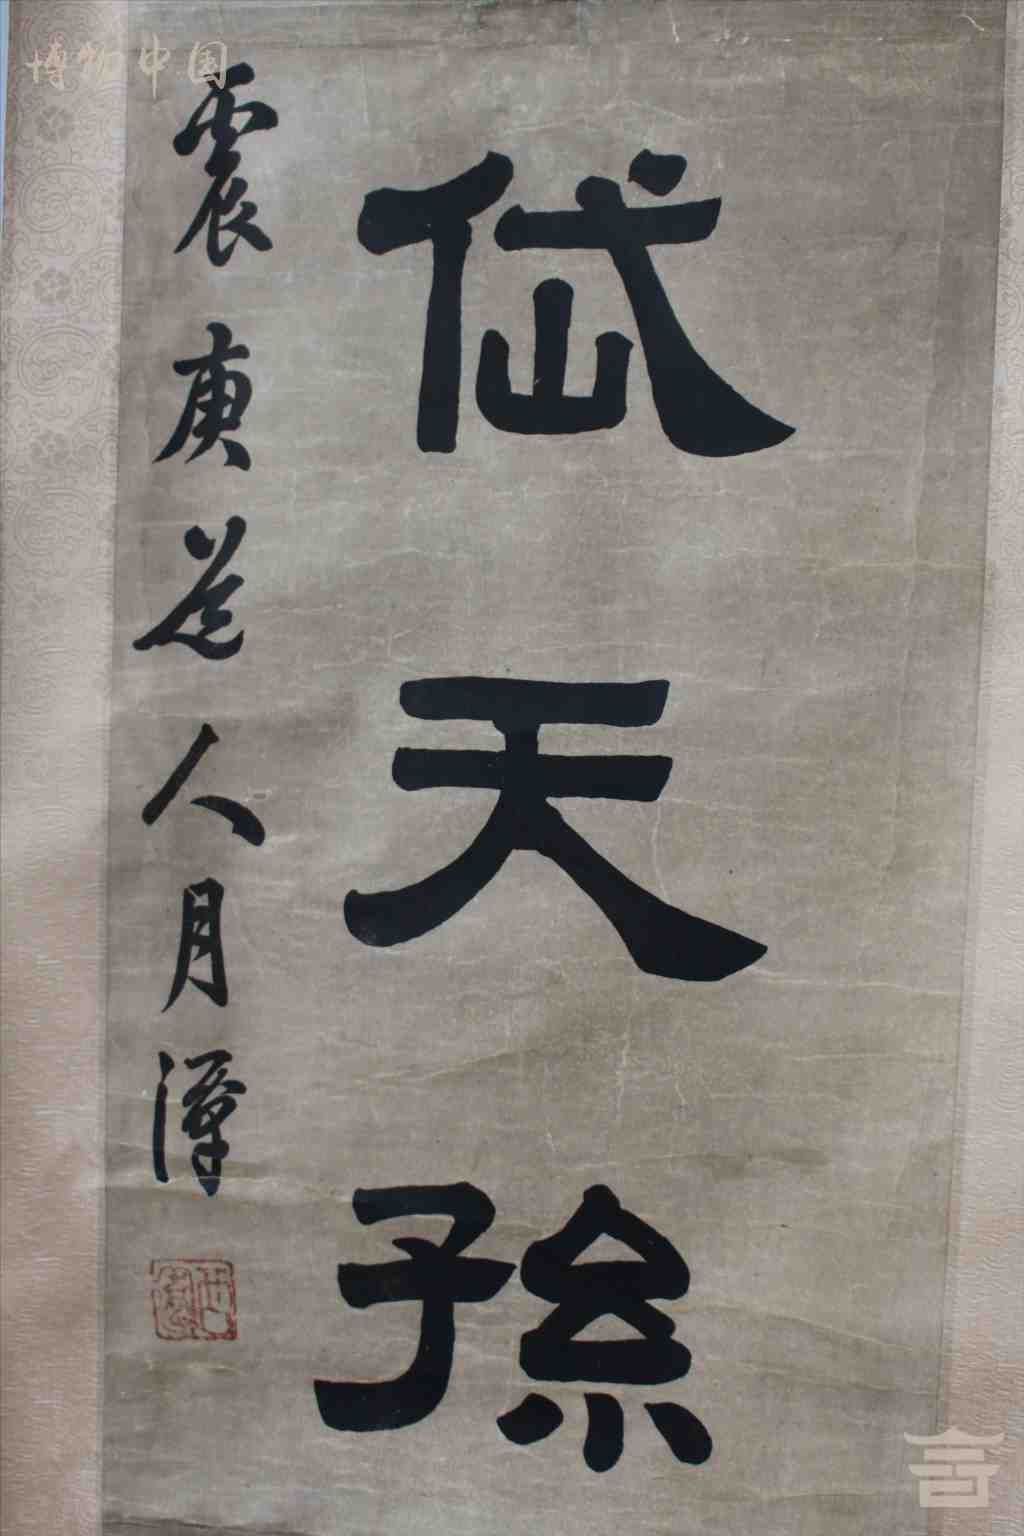 岱天孫
震庚道人月潭
博物中国